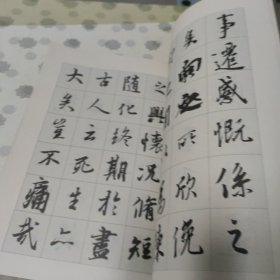 事遷感慨係之
矣向之所欣俛
之興懷況脩短
隨化終期於盡
古人云死生亦
大矣豈不痛哉